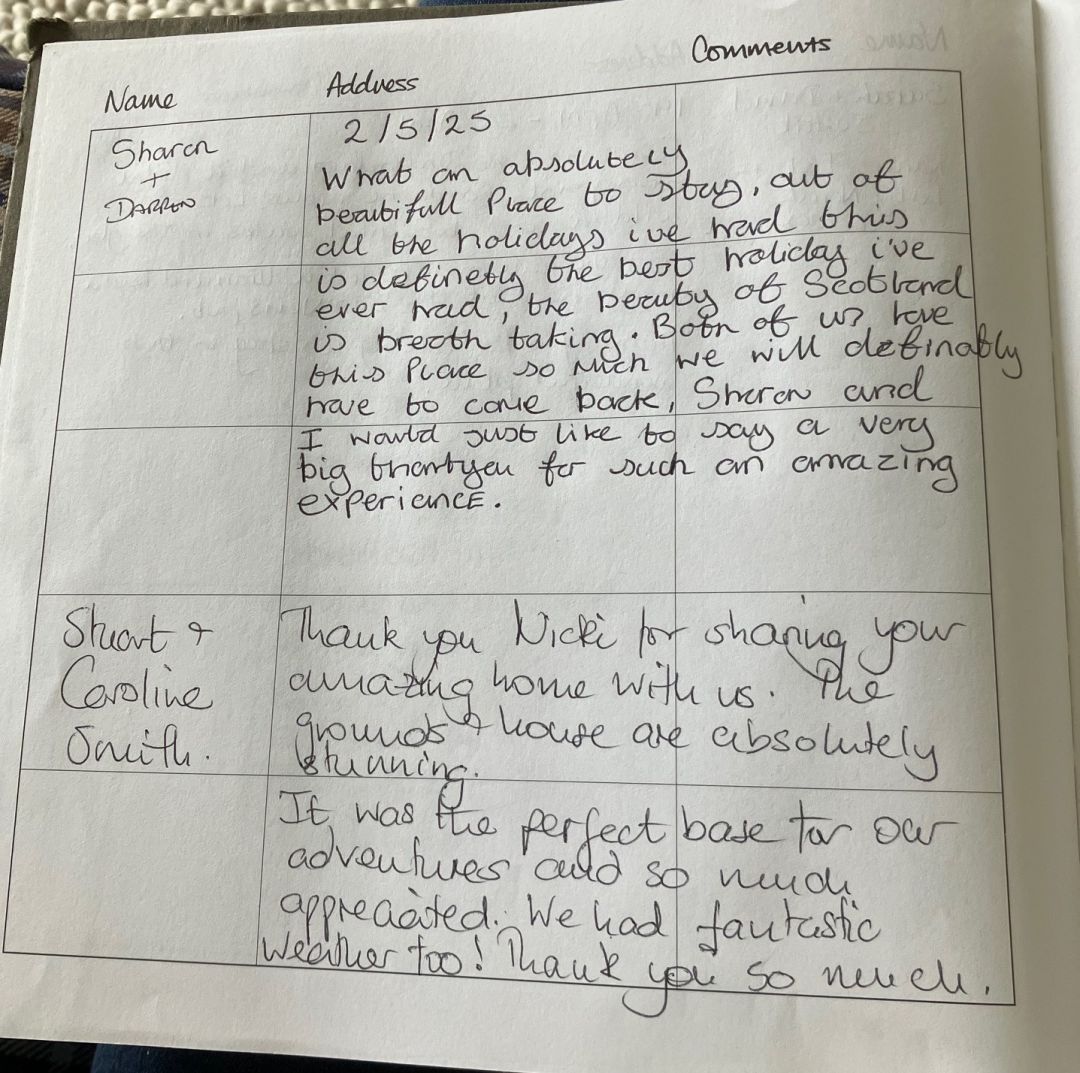 Name Address Comments
Sharon
+
DARREN
2/5/25
What an absolutely
beautifull Place to stay, out of
all the holidays ive had this
is definetly the best holiday i've
ever had, the beauty of Scotland
is breath taking. Both of us love
this Place so much we will definably
have to come back, Sharon and
I would just like to say a very
big thankyou for such an amazing
experience.
Stuart &
Caroline
Smith.
Thank you Nicki for sharing your
amazing home with us. The
grounds & house are absolutely
stunning.
It was the perfect base for our
adventures and so much
appreciated. We had fantastic
weather too! Thank you so much.